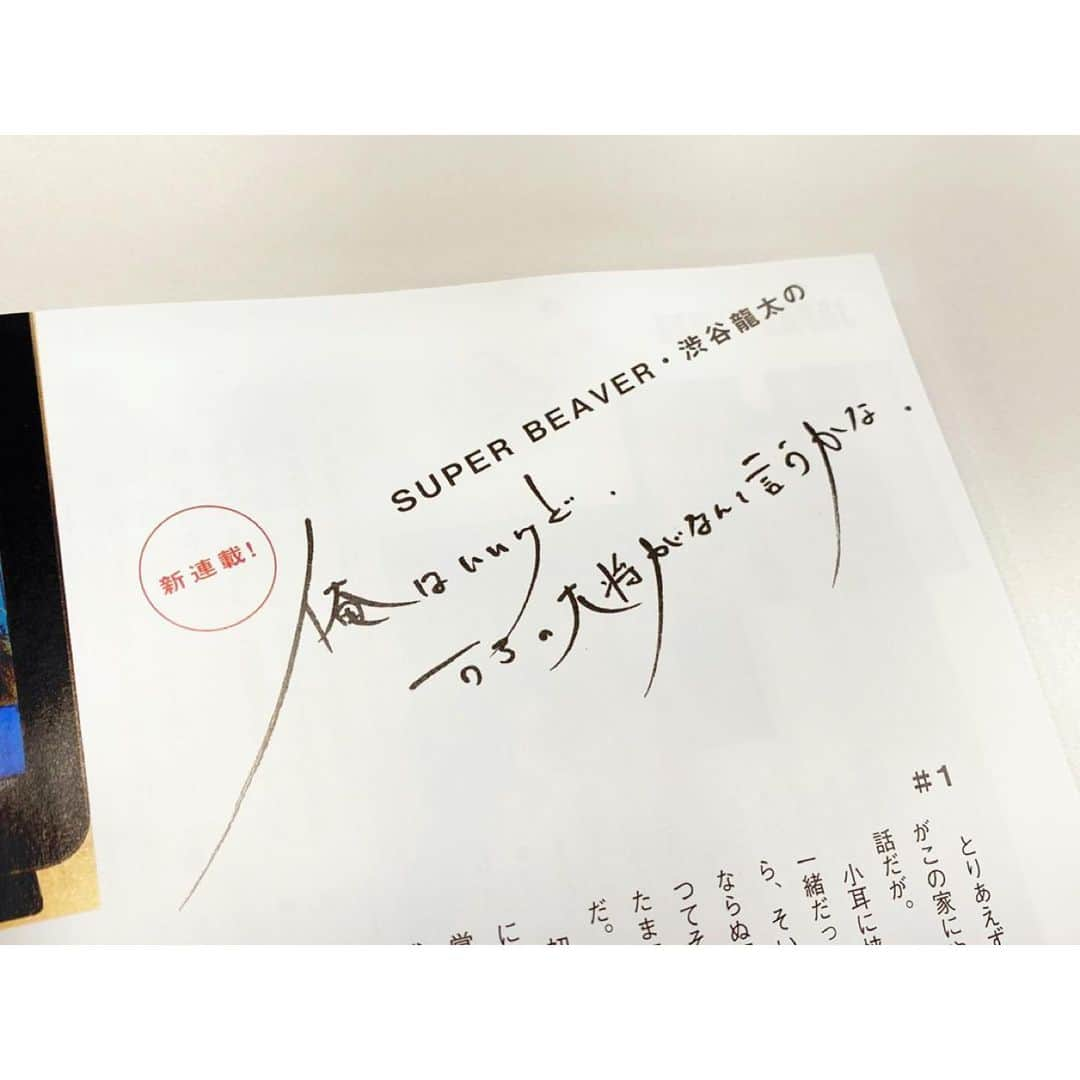 新連載！
SUPER BEAVER・渋谷龍太の
俺はいいけど、
うちの大将がなんて言うかな。
#1
とりあえず
がこの家に
話だが。
小耳に
一緒だっ
ら、そい
ならぬ
つてそ
たま
だ。
に